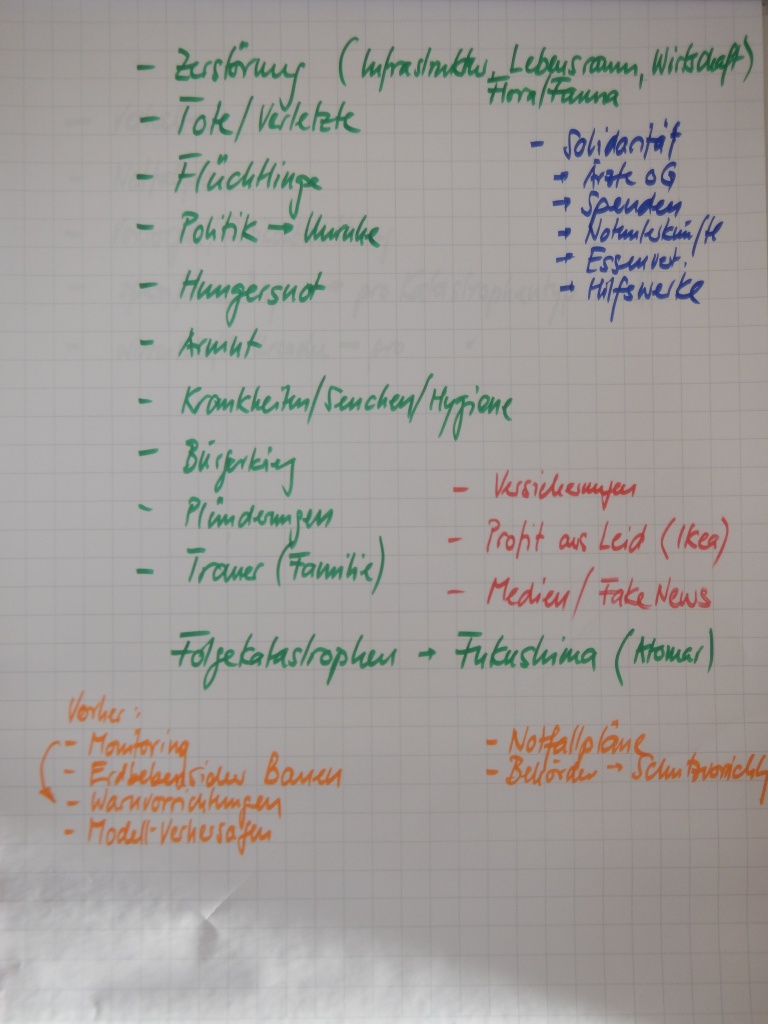 - Zerstörung (Infrastruktur, Lebensraum, Wirtschaft)
Flora/Fauna
- Tote/Verletzte
- Solidarität
→ Ärzte oG
- Flüchtlinge
→ Spenden
- Politik → Unruhe
→ Notunterkünfte
→ Essenvert.
- Hungersnot
→ Hilfswerke
- Armut
- Krankheiten/Seuchen/Hygiene
- Bürgerkrieg
- Versicherungen
- Plünderungen
- Profit aus Leid (Ikea)
- Trauer (Familie)
- Medien/Fake News
Folgekatastrophen → Fukushima (Atomar)
Vorher:
- Monitoring
- Notfallpläne
- Erdbebensicher Bauen
- Behörden → Schutzvorricht
- Warnvorrichtungen
- Modell-Verhersagen